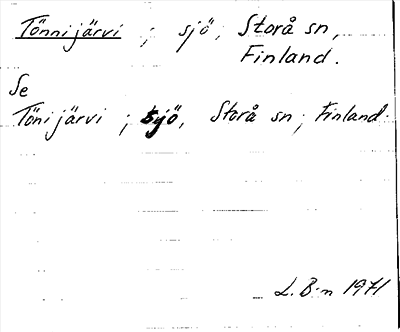 Tönnijärvi ; sjö, Storå sn,
Finland.
Se
Tönijärvi ; sjö, Storå sn ; Finland.
L. B:n 1971